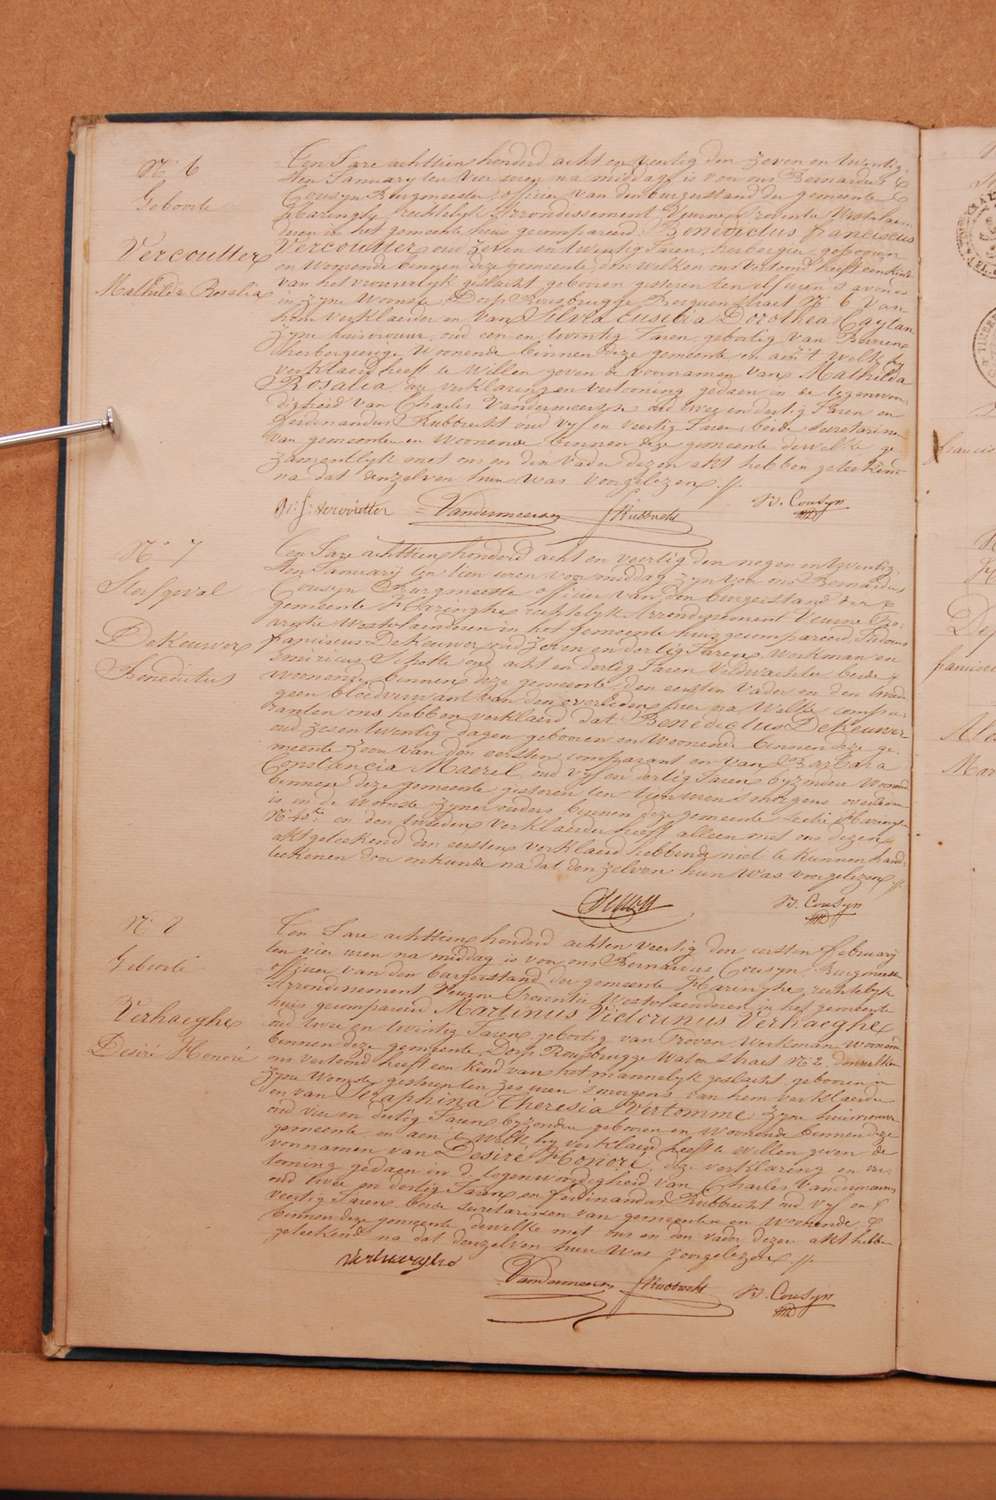 N.º 6
Geboorte
Vercoutter
Mathilda Rosalia
Een Jare achttien honderd acht en veertig den zeven en twintig
sten January ten vier uren na middag is voor ons Bernardus
Cousyn Burgmeester officier van den burgerstand der gemeente
Haringhe rechtelyk Arrondissement Veurne Provintie West vlaen
deren in het gemeente huis gecompareerd Benedictus franciscus
Vercoutter oud zeven en twintig Jaren, herbergier geboren
en Woonende binnen deze gemeente, den welken ons vertoond heeft een kind
van het vrouwelyk geslacht geboren gisteren ten elf uren s'avonds
in zyne Woonste, Dorp Rousbrugge Berguen straet N.º 6 Van
hem verklaerder en van Silvia Eusebia Dorothea Caytan
zyne huisvrouw, oud een en twintig Jaren, gebortig van Beveren
herbergierege Woonende binnen deze gemeente en aen 't welk hy
verklaerd heeft te Willen geven de voornamen van Mathilda
Rosalia deze verklaring en vertooning gedaen in de tegenwoor
digheid van Charles Vandermeersch oud twee en dertig Jaren en
ferdinandus Rubbrecht oud vyf en veertig Jaren, beide secretarissen
van gemeenten en Woonende binnen deze gemeente dewelke ge
zamentlyk met ons en den vader dezen akt hebben geteekend
na dat denzelven hun was voorgelezen ./.
B: f: vercoutter Vandermeersch f Rubbrecht B. Cousyn
N.º 7
Sterfgeval
DeKeuwer
Benedictus
Een Jare achttien honderd acht en veertig den negen en twintig
sten January ten tien uren voor middag zyn voor ons Bernardus
Cousyn Burgmeester officier van den burgerstand der
gemeente Haringhe rechtelyk Arrondissement Veurne Pro
vintie Westvlaenderen in het gemeente huis gecompareerd
franciscus DeKeuwer oud zeven en dertig Jaren, Werkman en
Scholle oud acht en dertig Jaren Veldwachter beide
Woonende binnen deze gemeente, den eersten Vader en den tweeden
geen bloedverwant van den overleden hier na Welke compa
ranten ons hebben verklaerd dat Benedictus DeKeuwer
oud zes en twintig dagen geboren en Woonende binnen deze ge
meente zoon van den eersten comparant en van Barbara
Constancia Maerel oud vyf en dertig Jaren byzondere Woonende
binnen deze gemeente gisteren ten tien uren s'morgens overleden
is in de Woonste zyner ouders binnen deze gemeente sectie Haringhe
N.º 40 en den tweeden verklaerder heeft alleen met ons dezen
akt geteekend den eersten verklaerd hebbende niet te kunnen hand
teekenen door onkunde na dat denzelven hun was voorgelezen ./.
B. Cousyn
N.º 8
Geboorte
Verhaeghe
Desiré Honoré
Een Jare achttien honderd acht en veertig den eersten february
ten vier uren na middag is voor ons Bernardus Cousyn Burgmeester
officier van den burgerstand der gemeente Haringhe rechtelyk
Arrondissement Veurne Provintie Westvlaenderen in het gemeente
huis gecompareerd Martinus Victorinus Verhaeghe
oud twee en twintig Jaren, gebortig van Proven Werkman Woonende
binnen deze gemeente, Dorp Rousbrugge Waton straet N.º 2, den welken
ons vertoond heeft een kind van het mannelyk geslacht geboren in
zyne Woonste gisteren ten zes uren s'morgens van hem verklaerder
en van Seraphina Theresia Vertomme zyne huisvrouw
oud vier en dertig Jaren byzondere geboren en Woonende binnen deze
gemeente en aen 't Welk hy verklaerd heeft te willen geven de
voornamen van Desiré Honoré, deze verklaring en ver
tooning gedaen in d' tegenwoordigheid van Charles Vandermeersch
oud twee en dertig Jaren en ferdinandus Rubbrecht oud vyf en
veertig Jaren beide secretarissen van gemeenten en Woonende
binnen deze gemeente dewelke met ons en den vader dezen akt hebben
geteekend na dat denzelven hun was voorgelezen ./.
Verhaeghe
Vandermeersch f Rubbrecht B. Cousyn